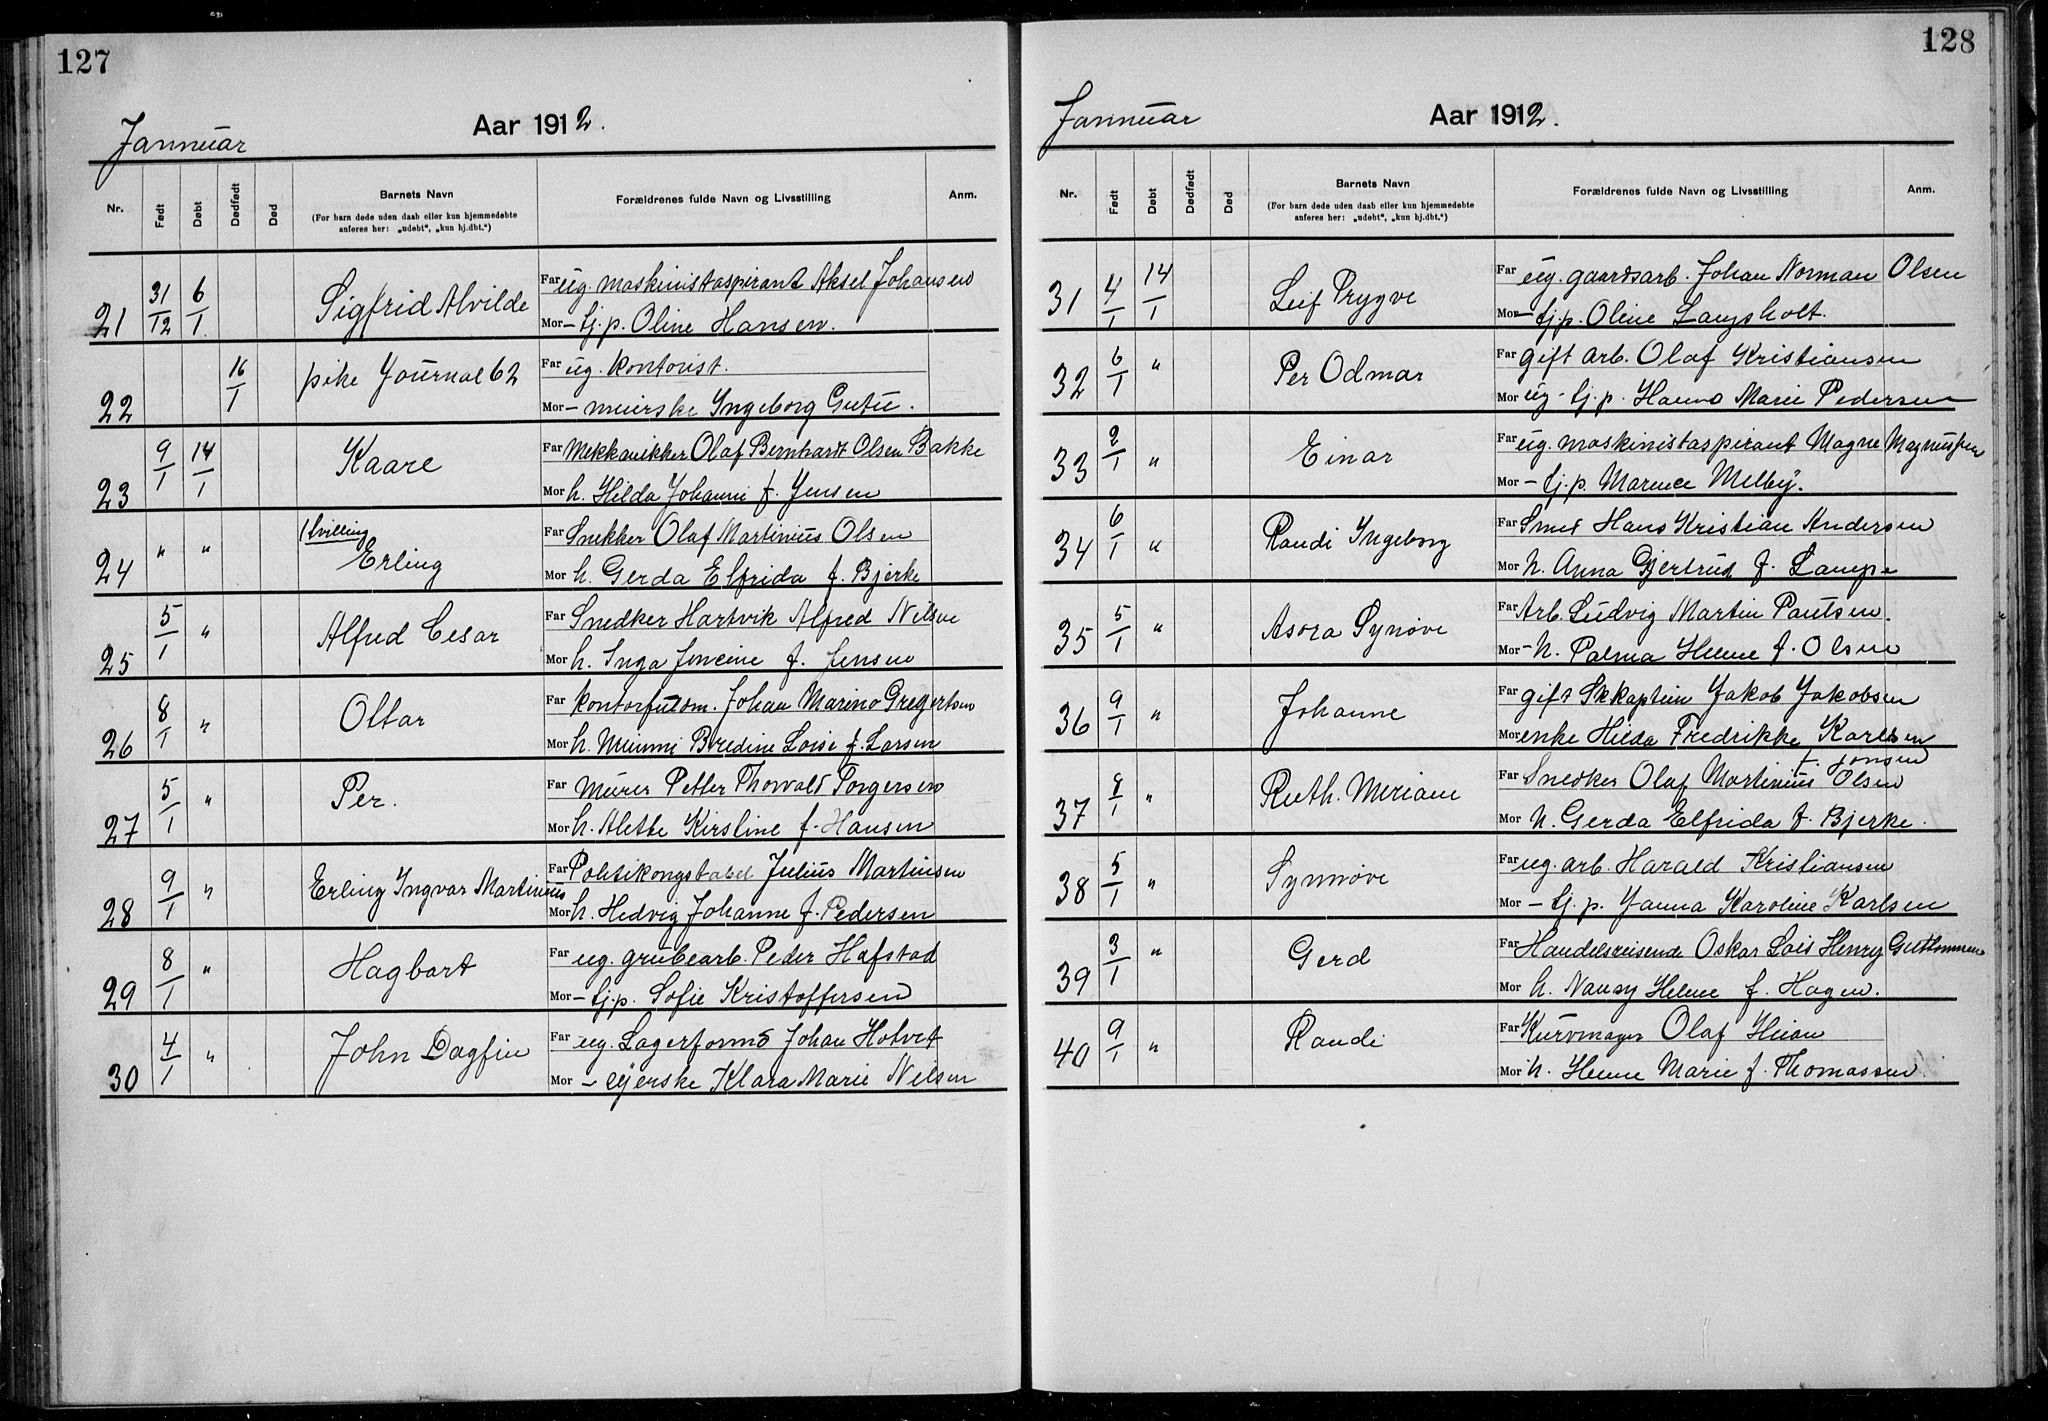 127
Januar
Aar 1912.
Nr. Født Døbt Dødfødt Død Barnets Navn Forældrenes fulde Navn og Livsstilling Anm.
(For barn døde uden daab eller kun hjemmedøbte
anføres her: „udøbt“, „kun hj.dbt.“)
21 31/12 6/1 Sigfrid Alvilde Far ug. maskinistaspirant Aksel Johansen
Mor – tj.p. Oline Hansen.
22 16/1 pike Journal 62 Far ug. kontorist.
Mor – meierske Ingeborg Gutu.
23 9/1 14/1 Kaare Far Mekkanikker Olaf Bernhardt Olsen Bakke
Mor h. Hilda Johanne f. Jensen
24 " " (tvilling) Erling Far Snekker Olaf Martinius Olsen
Mor h. Gerda Elfrida f. Bjerke
25 5/1 " Alfred Cesar Far Snedker Hartvik Alfred Nilsen
Mor h. Inga f. Jensen
26 8/1 " Ottar Far Kontorfuldm. Johan Marino Gregertsen
Mor h. Minni Bredine Loise f. Larsen
27 5/1 " Per. Far Murer Petter Thorvald Torgersen
Mor h. Alette Kirstine f. Hansen
28 9/1 " Erling Ingvar Martinius Far Politikongstabel Julius Martinsen
Mor h. Hedvig Johanne f. Pedersen
29 8/1 " Hagbart Far ug. grubearb. Peder Hafstad
Mor – tj.p. Sofie Kristoffersen
30 4/1 " John Dagfin Far ug. Lagerformd Johan Hotvet
Mor – syerske Klara Marie Nilsen
128
Januar
Aar 1912.
Nr. Født Døbt Dødfødt Død Barnets Navn Forældrenes fulde Navn og Livsstilling Anm.
(For barn døde uden daab eller kun hjemmedøbte
anføres her: „udøbt“, „kun hj.dbt.“)
31 4/1 14/1 Leif Trygve Far ug. gaardsarb. Johan Norman Olsen
Mor – tj.p. Oline Langsholt.
32 6/1 " Per Odmar Far gift arb. Olaf Kristiansen
Mor ug. tj.p. Hanna Marie Pedersen
33 2/1 " Einar Far ug. maskinistaspirant Magne Magnussen
Mor – tj.p. Marence Melby.
34 6/1 " Randi Ingeborg Far Smed Hans Kristian Andersen
Mor h. Anna Gjertrud f. Lampe
35 5/1 " Asora Synøve Far Arb. Ludvig Martin Paulsen.
Mor – h. Palma Helene f. Olsen
36 9/1 " Johanne Far gift Skkaptein Jakob Jakobsen
Mor enke Hilda Fredrikke Karlsen
f. Jonsen
37 8/1 " Ruth. Miriam Far Snedker Olaf Martinius Olsen
Mor h. Gerda Elfrida f. Bjerke.
38 5/1 " Synnøve Far ug. arb. Harald Kristiansen
Mor – tj.p. Janna Karoline Karlsen
39 3/1 " Gerd Far Handelsreisende Oskar Lois Henry Guttormsen
Mor h. Nansy Helene f. Hagen.
40 9/1 " Randi Far Kurvmager Olaf Heian
Mor h. Helene Marie f. Thomassen.